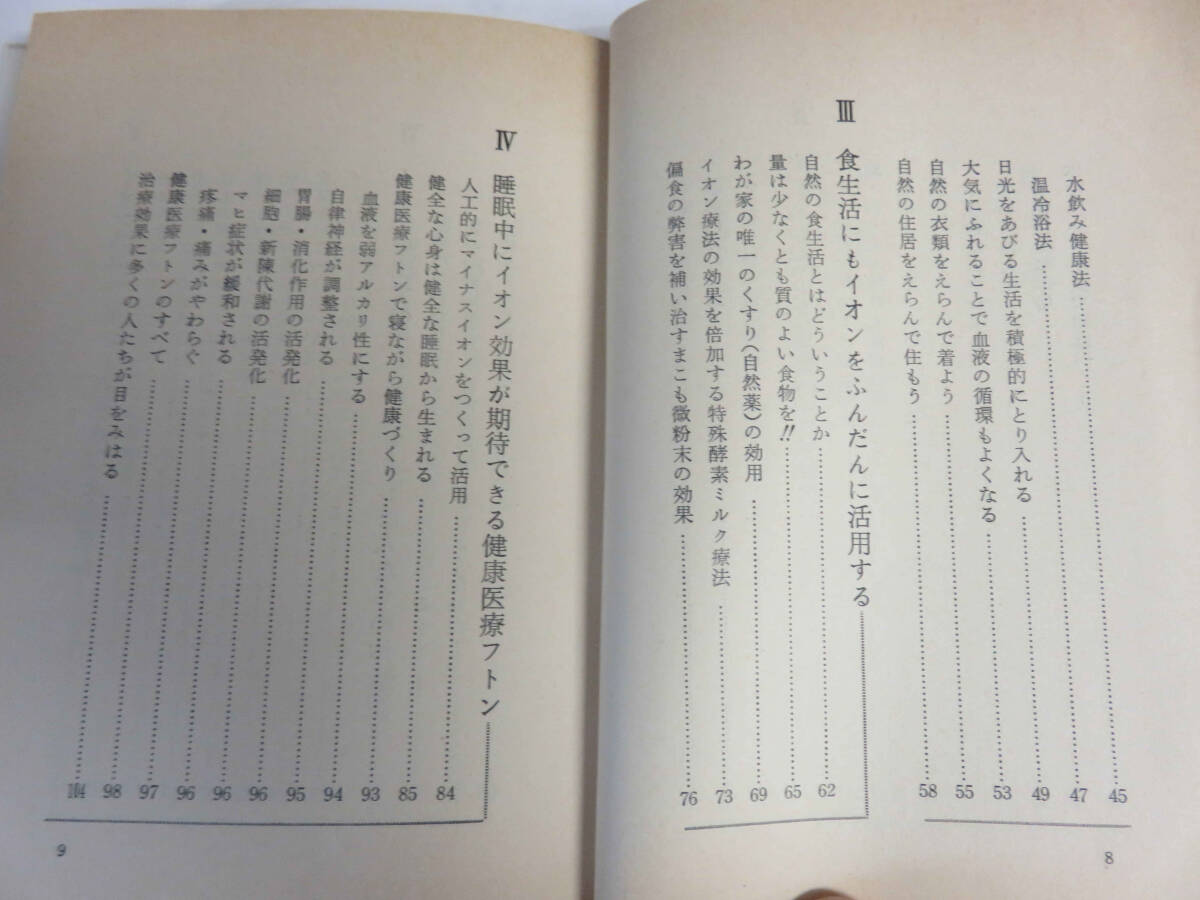 水飲み健康法 45
温冷浴法 47
日光をあびる生活を積極的にとり入れる 49
大気にふれることで血液の循環もよくなる 53
自然の衣類をえらんで着よう 55
自然の住居をえらんで住もう 58
Ⅲ 食生活にもイオンをふんだんに活用する
自然の食生活とはどういうことか 62
量は少なくとも質のよい食物を!! 65
わが家の唯一のくすり(自然薬)の効用 69
イオン療法の効果を倍加する特殊酵素ミルク療法 73
偏食の弊害を補い治すまこも微粉末の効果 76
8
Ⅳ 睡眠中にイオン効果が期待できる健康医療フトン
人工的にマイナスイオンをつくって活用 84
健全な心身は健全な睡眠から生まれる 85
健康医療フトンで寝ながら健康づくり 93
血液を弱アルカリ性にする 94
自律神経が調整される 95
胃腸・消化作用の活発化 96
細胞・新陳代謝の活発化 96
マヒ症状が緩和される 96
疼痛・痛みがやわらぐ 97
健康医療フトンのすべて 98
治療効果に多くの人たちが目をみはる 104
9